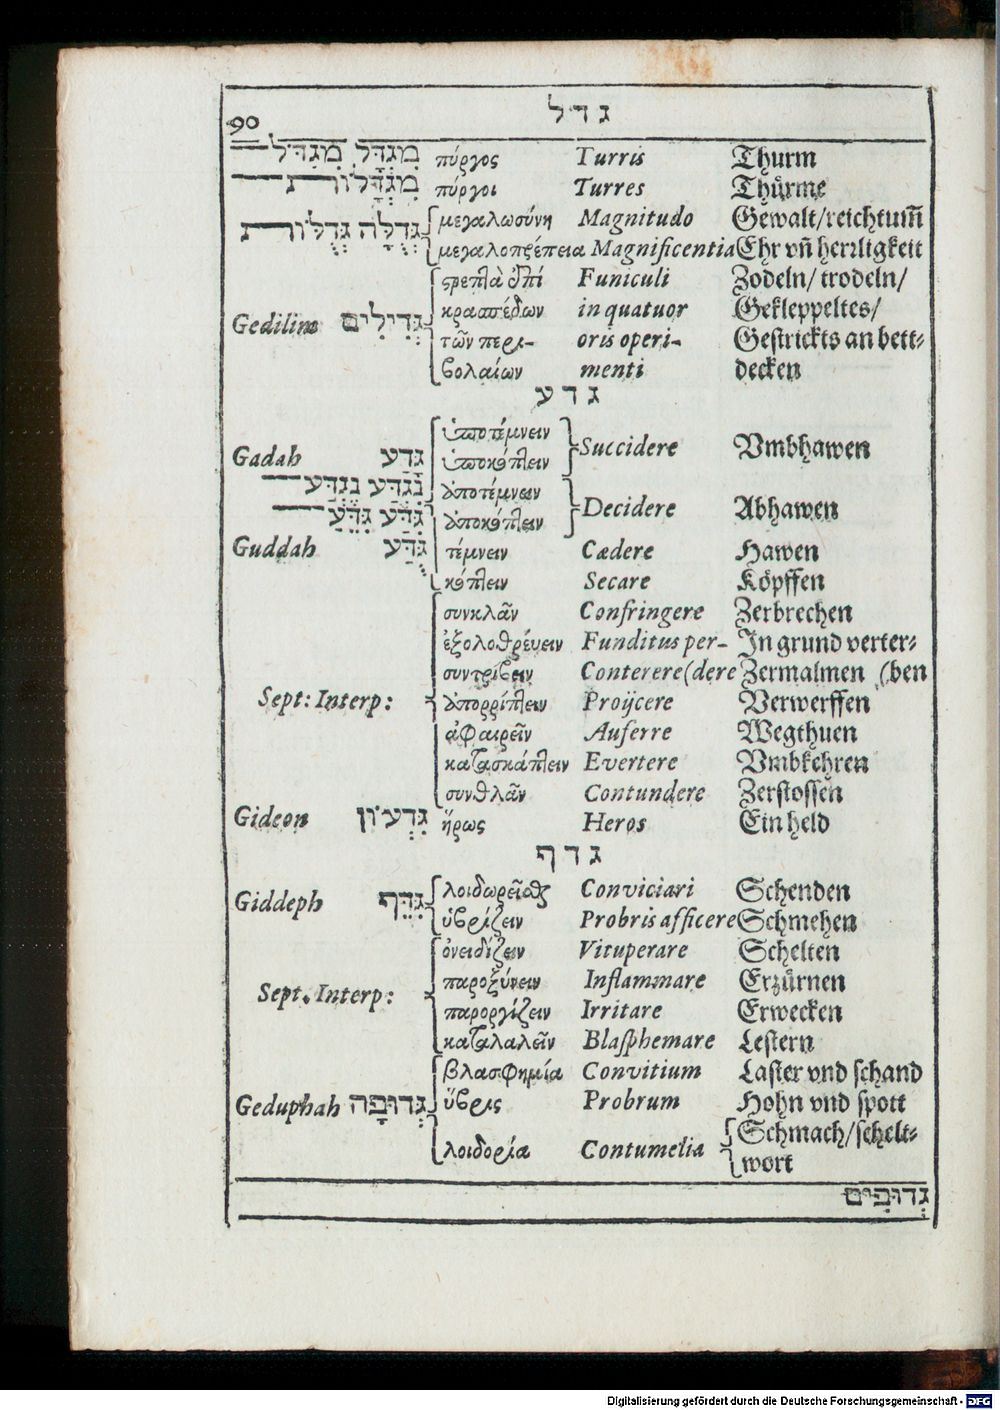 90 גדל
מִגְדָּל מִגְדַּל πύργος Turris Thurm
מִגְדָּלוֹת πύργοι Turres Thürme
גְּדֻלָּה גְּדֻלּוֹת μεγαλωσύνη Magnitudo Gewalt/reichtum̃
μεγαλοπρέπεια Magnificentia Ehr vñ herrligkeit
ςρεπτὰ ἐπί Funiculi Zodeln/ trodeln/
κρασπέδων in quatuor Gekleppeltes/
Gedilim גְּדִילִים τῶν περι- oris operi- Gestrickts an bett-
βολαίων menti decken
גדע
ὑποτέμνειν
Gadah גָּדַע ὑποκόπτειν Succidere Vmbhawen
נִגְדַּע ἀποτέμνειν
גִּדַּע ἀποκόπτειν Decidere Abhawen
Guddah גֻּדַּע τέμνειν Cædere Hawen
κόπτειν Secare Köpffen
συνκλᾶν Confringere Zerbrechen
ἐξολοθρέυειν Funditus per- In grund verter-
συντρίβειν Conterere (dere Zermalmen (ben
Sept: Interp: ἀπορρίπτειν Proijcere Verwerffen
ἀφαιρεῖν Auferre Wegthuen
κατασκάπτειν Evertere Vmbkehren
συνθλᾶν Contundere Zerstossen
Gideon גִּדְעוֹן ἥρως Heros Ein held
גדף
Giddeph גִּדֵּף λοιδωρεῖσθαι Conviciari Schenden
ὑβρίζειν Probris afficere Schmehen
ὀνειδίζειν Vituperare Schelten
Sept. Interp: παροξύνειν Inflammare Erzürnen
παροργίζειν Irritare Erwecken
καταλαλεῖν Blasphemare Lestern
βλασφημία Convitium Laster vnd schand
Geduphah גְּדוּפָה ὕβρις Probrum Hohn vnd spott
λοιδορία Contumelia Schmach/schelt-
wort
גְּדוּפִים
Digitalisierung gefördert durch die Deutsche Forschungsgemeinschaft - DFG